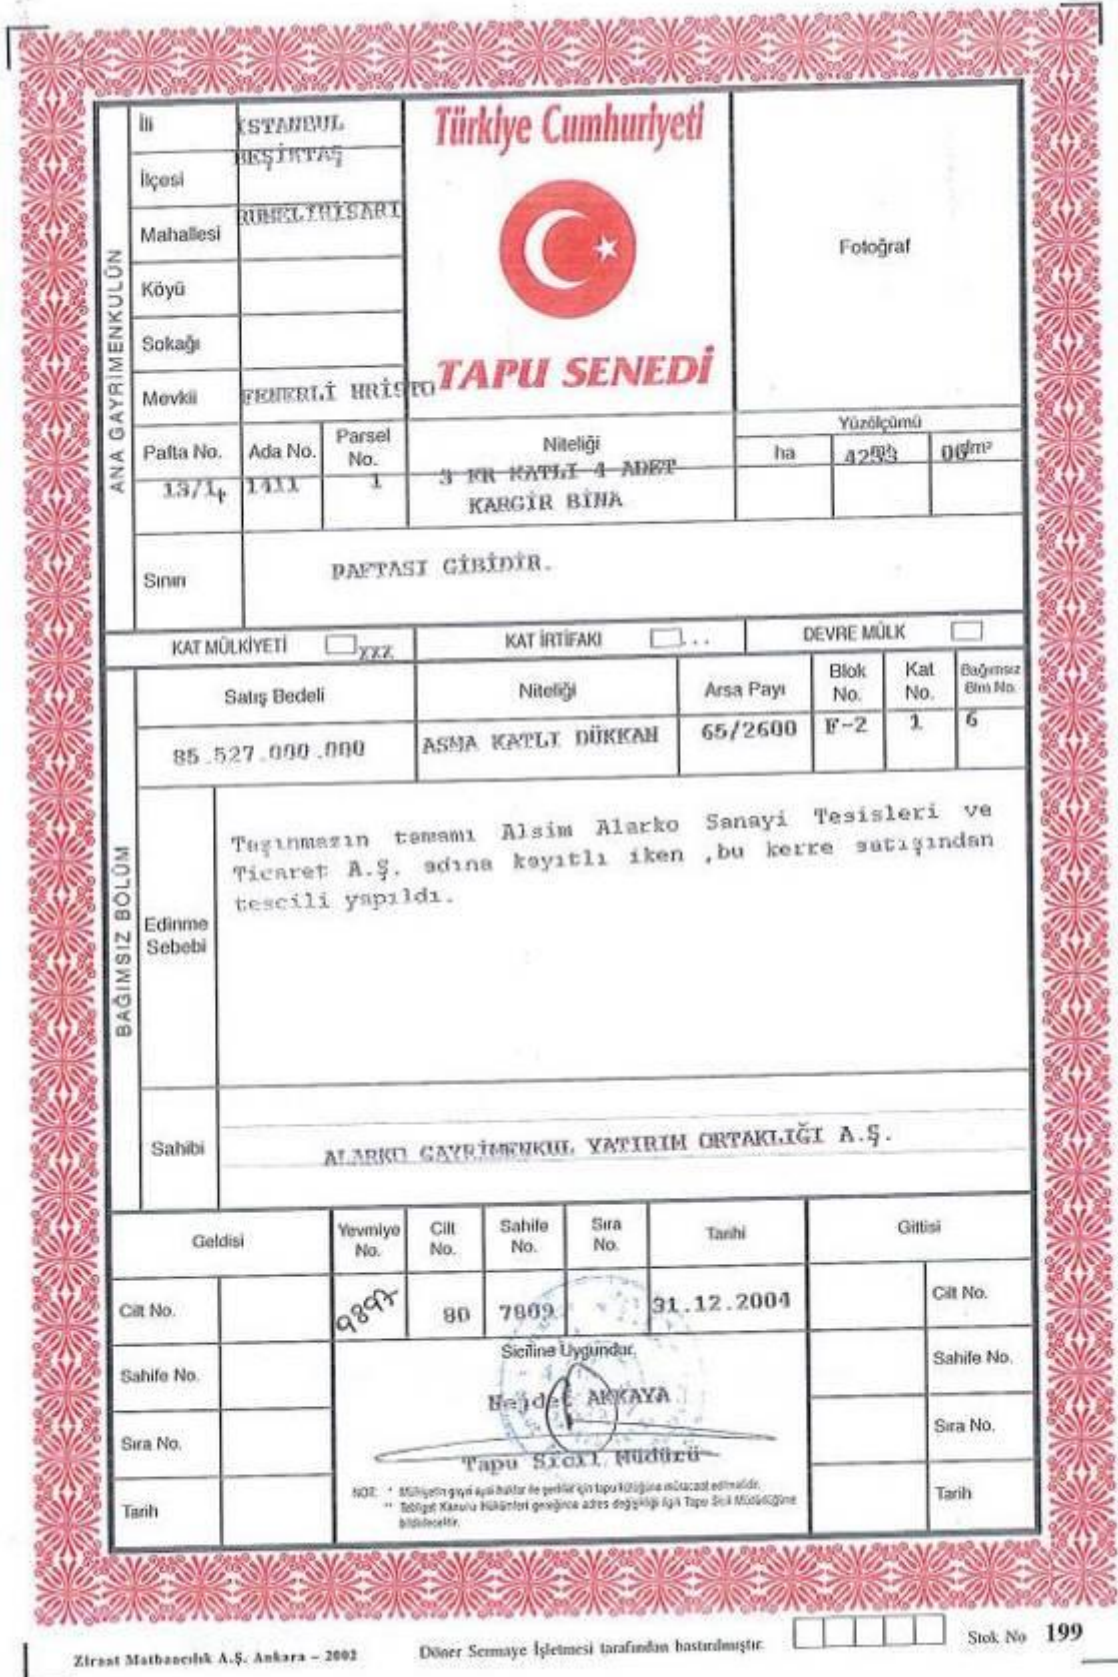 Türkiye Cumhuriyeti
TAPU SENEDİ
Fotoğraf
ANA GAYRİMENKULÜN
İli İSTANBUL
İlçesi BEŞİKTAŞ
Mahallesi RUMELİHİSARI
Köyü
Sokağı
Mevkii FENERLİ HRİSTO
Pafta No. Ada No. Parsel No. Niteliği Yüzölçümü
ha m² dm²
13/1 1411 1 3 ER KATLI 4 ADET 4253 00
KARGİR BİNA
Sınırı PAFTASI GİBİDİR.
KAT MÜLKİYETİ xxx KAT İRTİFAKI ... DEVRE MÜLK
BAĞIMSIZ BÖLÜM
Satış Bedeli Niteliği Arsa Payı Blok No. Kat No. Bağımsız Blm No.
85.527.000.000 ASMA KATLI DÜKKAN 65/2600 F-2 1 6
Edinme Sebebi
Taşınmazın tamamı Alsim Alarko Sanayi Tesisleri ve
Ticaret A.Ş. adına kayıtlı iken ,bu kerre satışından
tescili yapıldı.
Sahibi ALARKO GAYRİMENKUL YATIRIM ORTAKLIĞI A.Ş.
Geldisi Yevmiye No. Cilt No. Sahife No. Sıra No. Tarihi Gittisi
Cilt No. 9897 80 7809 31.12.2004 Cilt No.
Siciline Uygundur.
Sahife No. Sahife No.
Nejdet AKKAYA
Sıra No. Sıra No.
Tapu Sicil Müdürü
Tarih Tarih
NOT: * Mülkiyetin gayri ayni haklar ile şerhler için tapu kütüğüne müracaat edilmelidir.
** Tebligat Kanunu Hükümleri gereğince adres değişikliği ilgili Tapu Sicil Müdürlüğüne
bildirilecektir.
Ziraat Matbaacılık A.Ş. Ankara – 2002 Döner Sermaye İşletmesi tarafından bastırılmıştır. Stok No 199